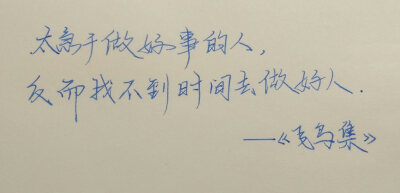 太急于做好事的人，
反而找不到时间去做好人．
——《飞鸟集》